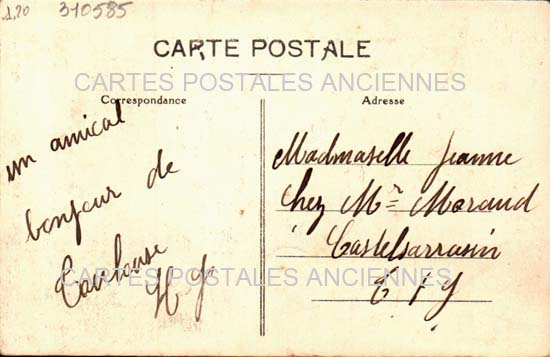 1,20 310585
CARTE POSTALE
CARTES POSTALES ANCIENNES
Correspondance
Adresse
un amical
bonjour de
Toulouse
Madmaselle Jeanne
Chez Mr Moraud
Castelsarrasin
T & G
CARTES POSTALES ANCIENNES